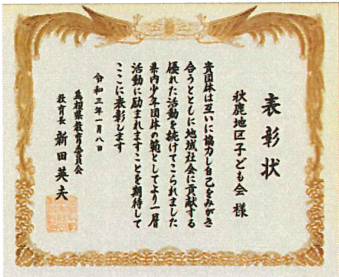 表彰状
秋鹿地区子ども会 様
貴団体は互いに協力し自己をみがき
合うとともに地域社会に貢献する
優れた活動を続けてこられました
県内少年団体の範としてより一層
活動に励まれますことを期待して
ここに表彰します
令和三年一月八日
島根県教育委員会
教育長 新田英夫